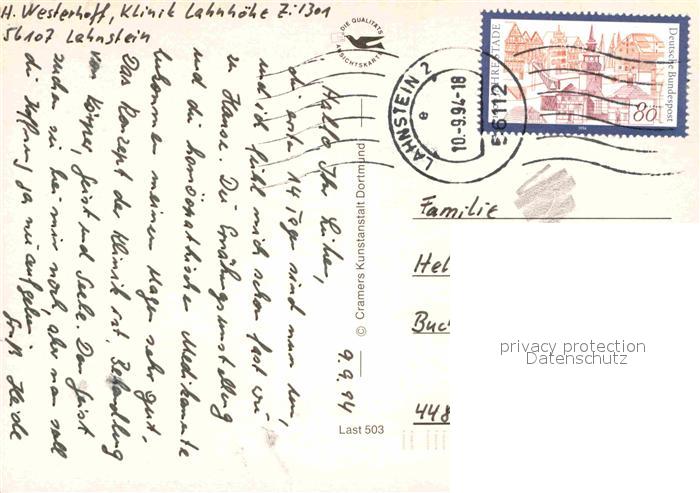 H. Westerhoff, Klinik Lahnhöhe Zi 1301
56107 Lahnstein
Hallo Ihr Lieben,
die ersten 14 Tage sind nun um,
und ich fühl mich schon fast wie
zu Hause. Die Ernährungsumstellung
und die homöopathischen Medikamente
bekommen meinem Magen sehr gut.
Das Konzept der Klinik ist, Behandlung
von Körper, Geist und Seele. Den Geist
suchen sie bei mir noch, aber man soll
die Hoffnung ja nie aufgeben.
Gruß Heide
9.9.94
DIE QUALITÄTS
ANSICHTSKARTE
© Cramers Kunstanstalt Dortmund
Last 503
LAHNSTEIN 2
e
10.-9.94-18
56112
JAHRE STADE
Deutsche Bundespost
80
1994
Familie
Hel
Buc
448
privacy protection
Datenschutz